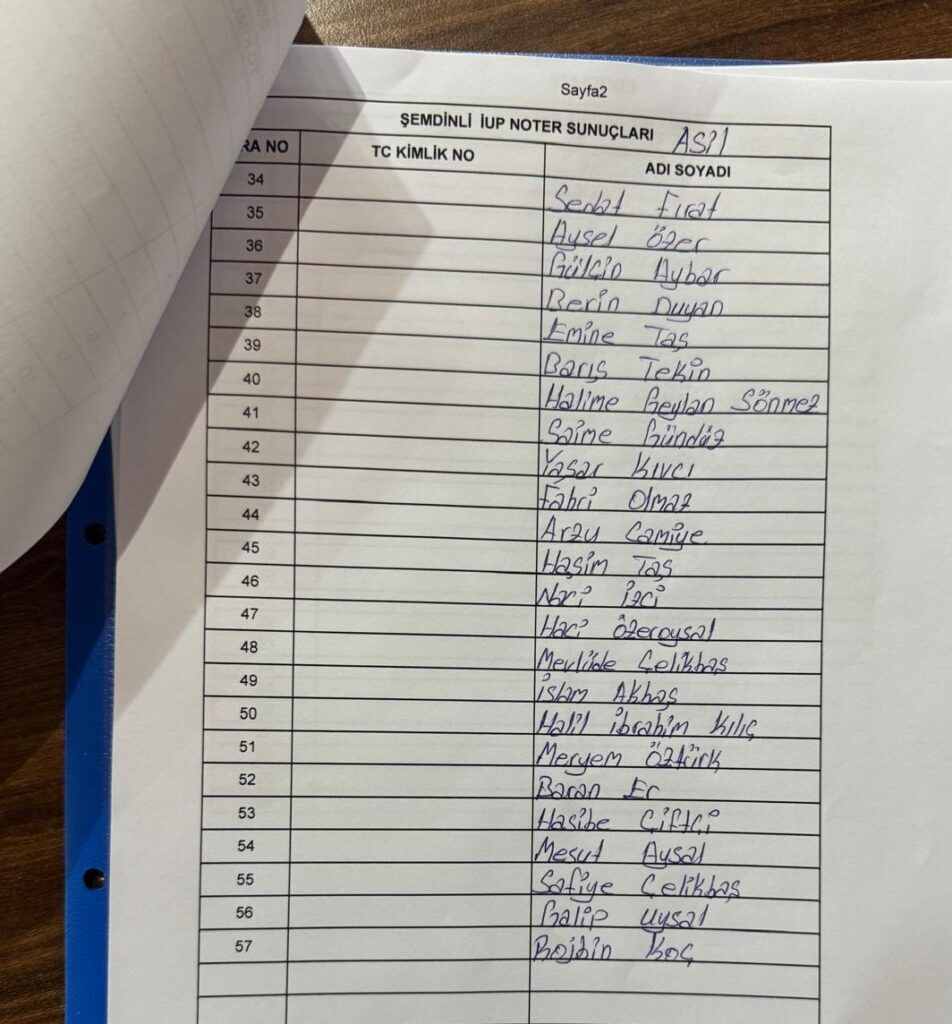 Sayfa2
ŞEMDİNLİ İUP NOTER SUNUÇLARI ASIl
RA NO TC KİMLİK NO ADI SOYADI
34 Sedat Fırat
35 Aysel Özer
36 Gülçin Aybar
37 Berin Duyan
38 Emine Taş
39 Barış Tekin
40 Halime Ceylan Sönmez
41 Saime Gündüz
42 Yaşar Kıvcı
43 Fahri Olmaz
44 Arzu Camiye
45 Haşim Taş
46 Naci İzci
47 Haci Özeroysal
48 Mevlüde Çelikbaş
49 İslam Akbaş
50 Halil İbrahim Kılıç
51 Meryem Öztürk
52 Baran Er
53 Hasibe Çiftçi
54 Mesut Aysal
55 Safiye Çelikbaş
56 Galip Uysal
57 Rojbin Koç